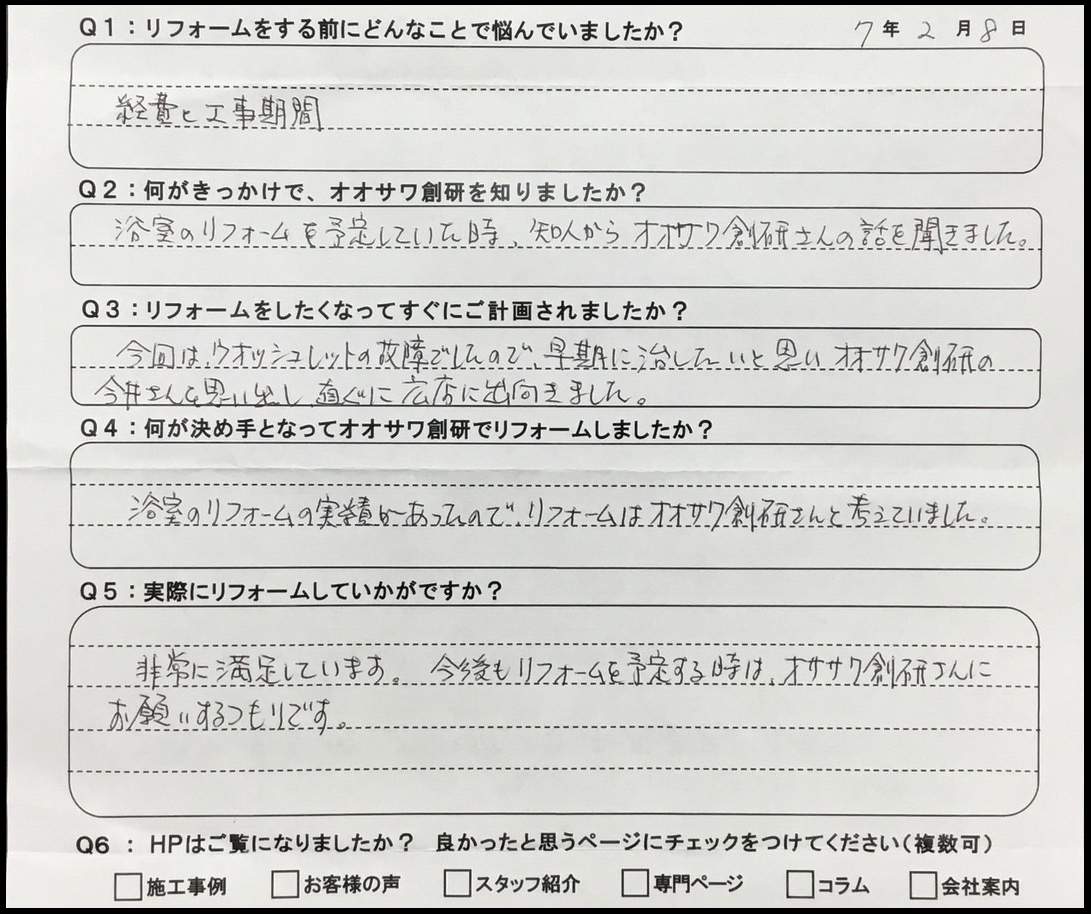 Q1：リフォームをする前にどんなことで悩んでいましたか？ 7年2月8日
経費と工事期間
Q2：何がきっかけで、オオサワ創研を知りましたか？
浴室のリフォームを予定していた時、知人からオオサワ創研さんの話を聞きました。
Q3：リフォームをしたくなってすぐにご計画されましたか？
今回は、ウオッシュレットの故障でしたので、早期に治したいと思いオオサワ創研の
今井さんを思い出し、直ぐに広店に出向きました。
Q4：何が決め手となってオオサワ創研でリフォームしましたか？
浴室のリフォームの実績があったので、リフォームはオオサワ創研さんと考えていました。
Q5：実際にリフォームしていかがですか？
非常に満足しています。今後もリフォームを予定する時は、オササワ創研さんに
お願いするつもりです。
Q6：HPはご覧になりましたか？ 良かったと思うページにチェックをつけてください（複数可）
□施工事例 □お客様の声 □スタッフ紹介 □専門ページ □コラム □会社案内